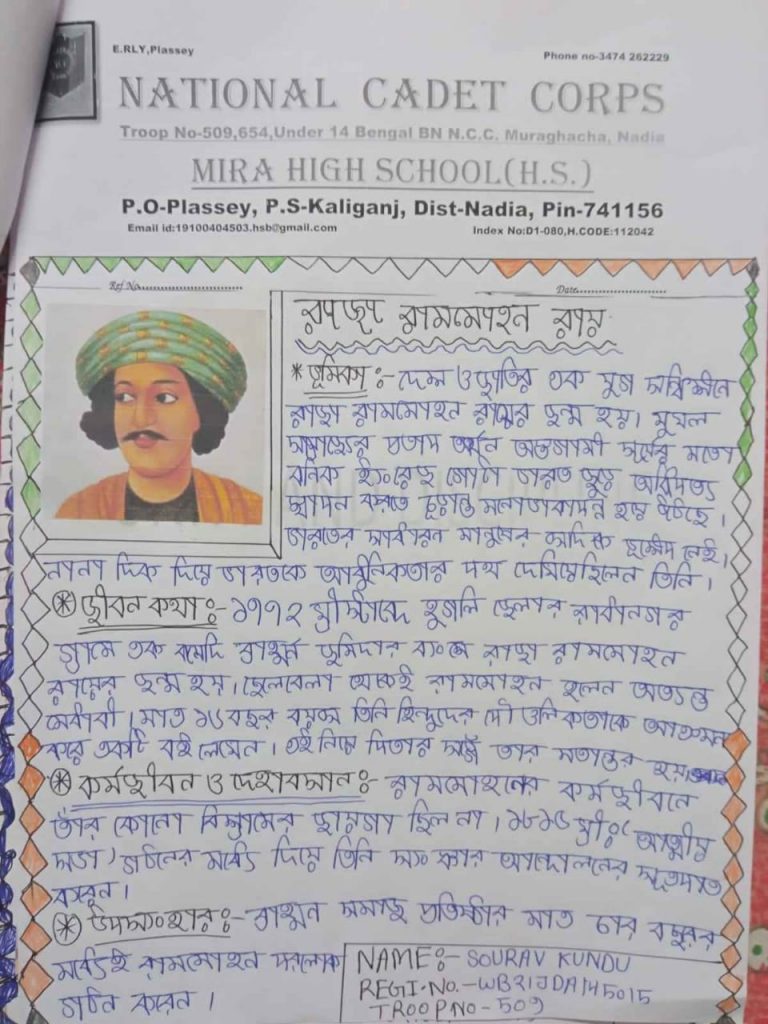 E.RLY,Plassey
Phone no-3474 262229
NATIONAL CADET CORPS
Troop No-509,654,Under 14 Bengal BN N.C.C. Muraghacha, Nadia
MIRA HIGH SCHOOL(H.S.)
P.O-Plassey, P.S-Kaliganj, Dist-Nadia, Pin-741156
Email id:19100404503.hsb@gmail.com
Index No:D1-080,H.CODE:112042
Ref No.
Date
রাজা রামমোহন রায়
* ভূমিকা :- দেশ ও জাতির এক যুগ সন্ধিক্ষনে
রাজা রামমোহন রায়ের জন্ম হয়। মুঘল
সাম্রাজ্যের প্রতাপ তখন অস্তগামী সূর্যের মতো
বনিক ইংরেজ গোষ্ঠী ভারত জুড়ে আধিপত্য
স্থাপন করতে চূড়ান্ত মনোভাবাপন্ন হয়ে উঠছে।
ভারতের সাধারন মানুষের সেদিকে ভ্রূক্ষেপ নেই।
নানা দিক দিয়ে ভারতকে আধুনিকতার পথ দেখিয়েছিলেন তিনি।
জীবন কথা :- ১৭৭২ খ্রীস্টাব্দে হুগলি জেলার রাধানগর
গ্রামে এক বনেদি ব্রাহ্মন জমিদার বংশে রাজা রামমোহন
রায়ের জন্ম হয়। ছেলেবেলা থেকেই রামমোহন ছিলেন অত্যন্ত
মেধাবী। মাত্র ১৬ বছর বয়সে তিনি হিন্দুদের পৌত্তলিকতাকে আক্রমন
করে একটি বই লেখেন। এই নিয়ে পিতার সঙ্গে তার মতান্তর হয়
কর্মজীবন ও দেহাবসান :- রামমোহনের কর্মজীবনে
তাঁর কোনো বিশ্রামের জায়গা ছিল না। ১৮১৫ খ্রীঃ আত্মীয়
সভা গঠনের মধ্যে দিয়ে তিনি সংস্কার আন্দোলনের সূত্রপাত
করেন।
উপসংহার :- ব্রাহ্মন সমাজ প্রতিষ্ঠার মাত্র চার বছরের
মধ্যেই রামমোহন পরলোক
গঠন করেন।
NAME:- SOURAV KUNDU
REGI.No.-WB21JDA145015
TROOP NO - 509